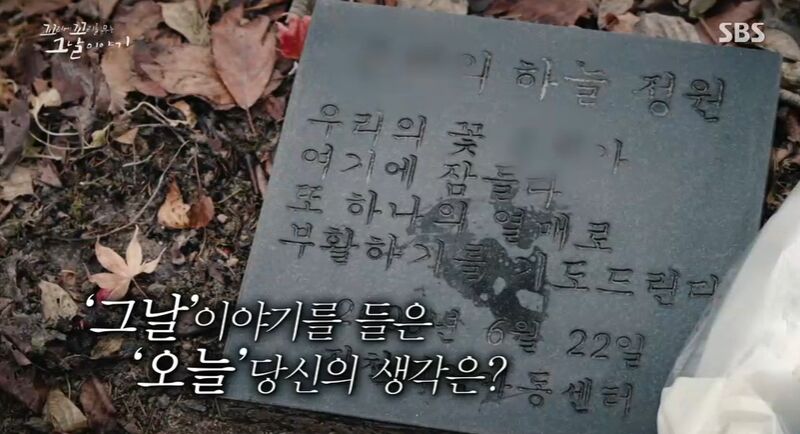 꼬리에 꼬리를 무는
그날 이야기
SBS
기 하늘 정원
우리의 꽃 가
여기에 잠들다
또 하나의 열매로
부활하기를 기도드린다
년 6월 22일
동센터
'그날'이야기를 들은
'오늘'당신의 생각은?